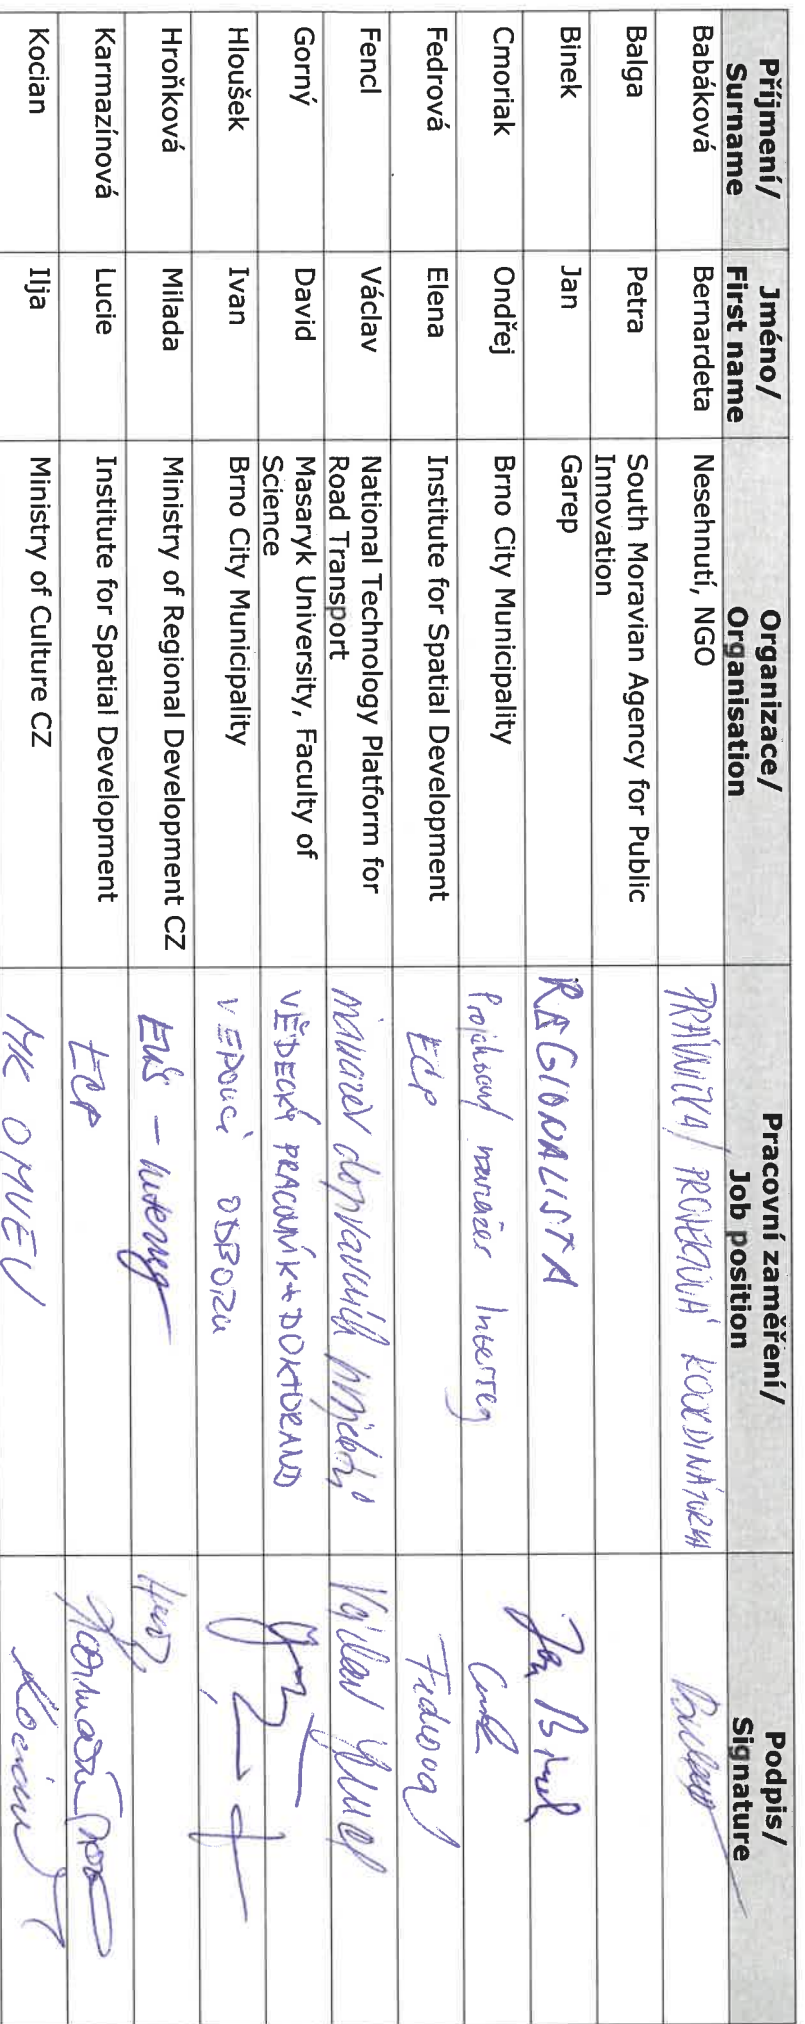 Příjmení/ Surname Jméno/ First name Organizace/ Organisation Pracovní zaměření/ Job position Podpis/ Signature
Babáková Bernardeta Nesehnutí, NGO PRÁVNIČKA/ PROJEKTOVÁ KOORDINÁTORKA
Balga Petra South Moravian Agency for Public Innovation
Binek Jan Garep REGIONALISTA Jan Binek
Cmoriak Ondřej Brno City Municipality Projektový manažer Interreg
Fedrová Elena Institute for Spatial Development ECP Fedrová
Fencl Václav National Technology Platform for Road Transport manažer dopravních projektů Václav Fencl
Gorný David Masaryk University, Faculty of Science VĚDECKÝ PRACOVNÍK + DOKTORAND
Hloušek Ivan Brno City Municipality VEDOUCÍ ODBORU
Hroňková Milada Ministry of Regional Development CZ - Interreg
Karmazínová Lucie Institute for Spatial Development ECP Karmazínová
Kocian Ilja Ministry of Culture CZ MK OMVEU Kocian